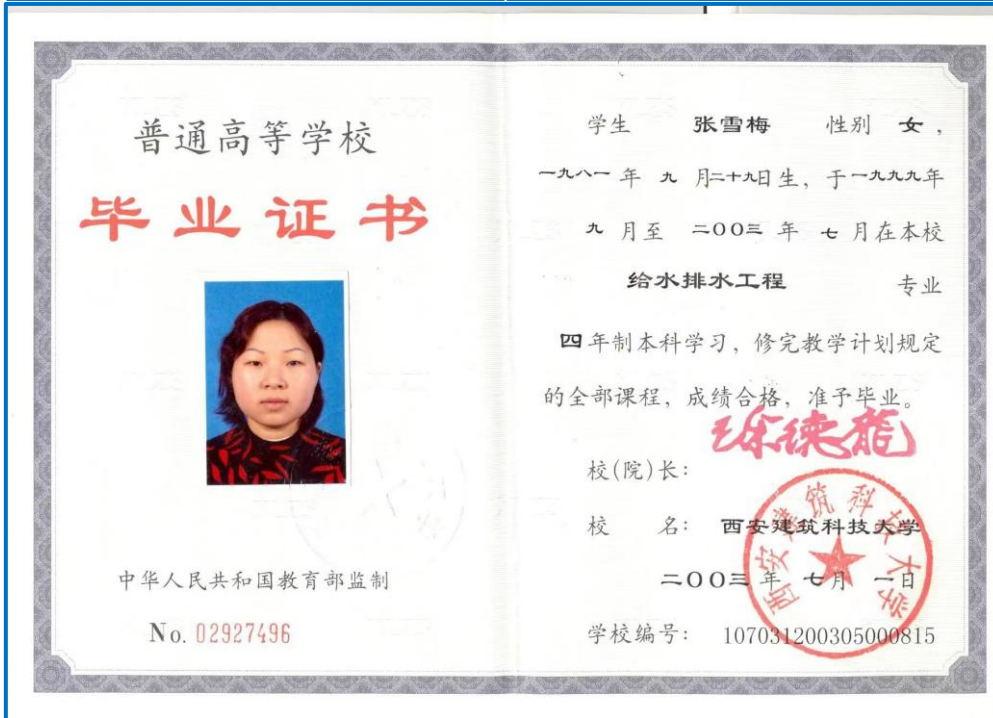 普通高等学校
毕业证书
中华人民共和国教育部监制
No. 02927496
学生 张雪梅 性别 女，
一九八一 年 九 月二十九日生，于一九九九年
九 月至 二00三 年 七 月在本校
给水排水工程 专业
四年制本科学习，修完教学计划规定
的全部课程，成绩合格，准予毕业。
校(院)长：
校 名： 西安建筑科技大学
二00三 年 七月 一日
学校编号： 107031200305000815
西安建筑科技大学